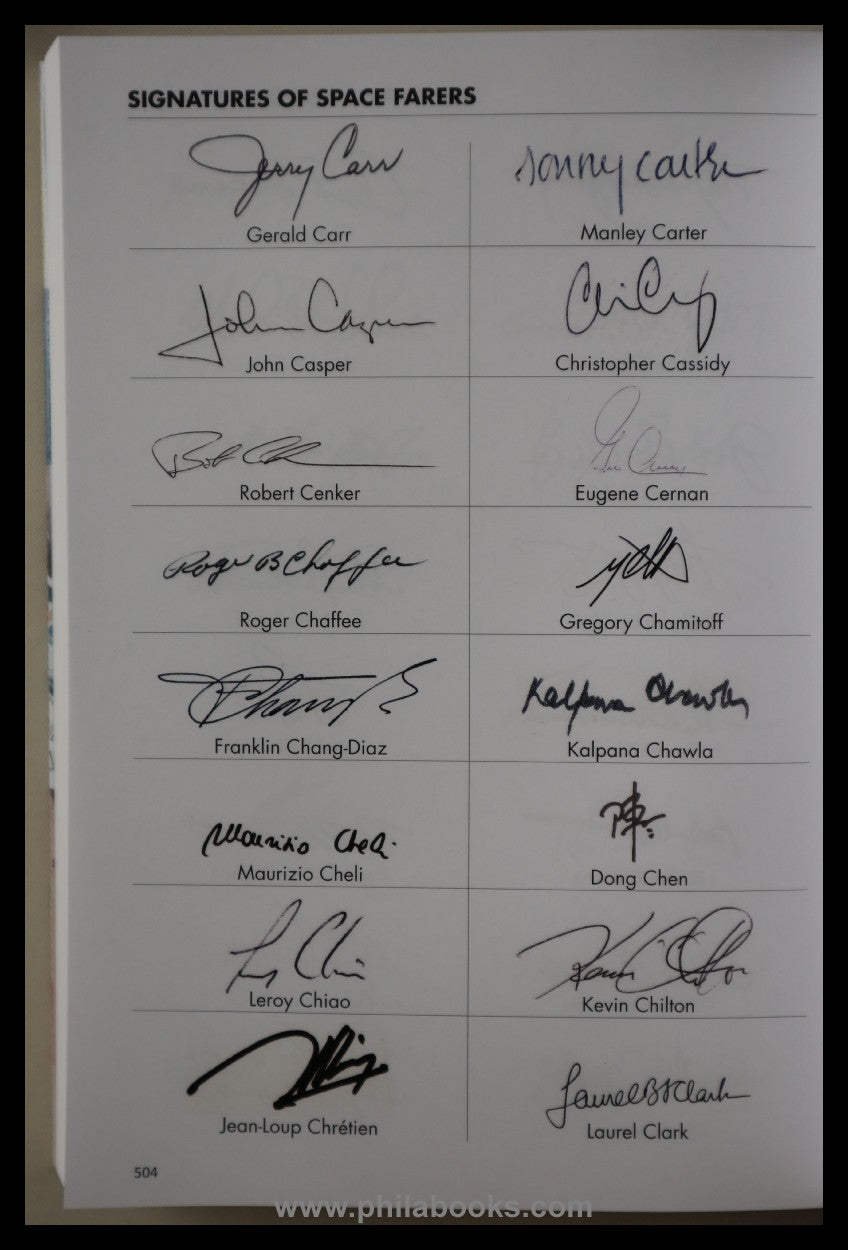 SIGNATURES OF SPACE FARERS
Jerry Carr
Sonny Carter
Gerald Carr
Manley Carter
John Casper
John Casper
Christopher Cassidy
Bob
Robert Cenker
Eugene Cernan
Roger B Chaffee
Roger Chaffee
Gregory Chamitoff
Kalpana Chawla
Franklin Chang-Diaz
Kalpana Chawla
Maurizio Cheli
陈
Maurizio Cheli
Dong Chen
Leroy Chiao
Kevin Chilton
Kevin Chilton
Jean-Loup Chrétien
Laurel B S Clark
Laurel Clark
504
www.philabooks.com